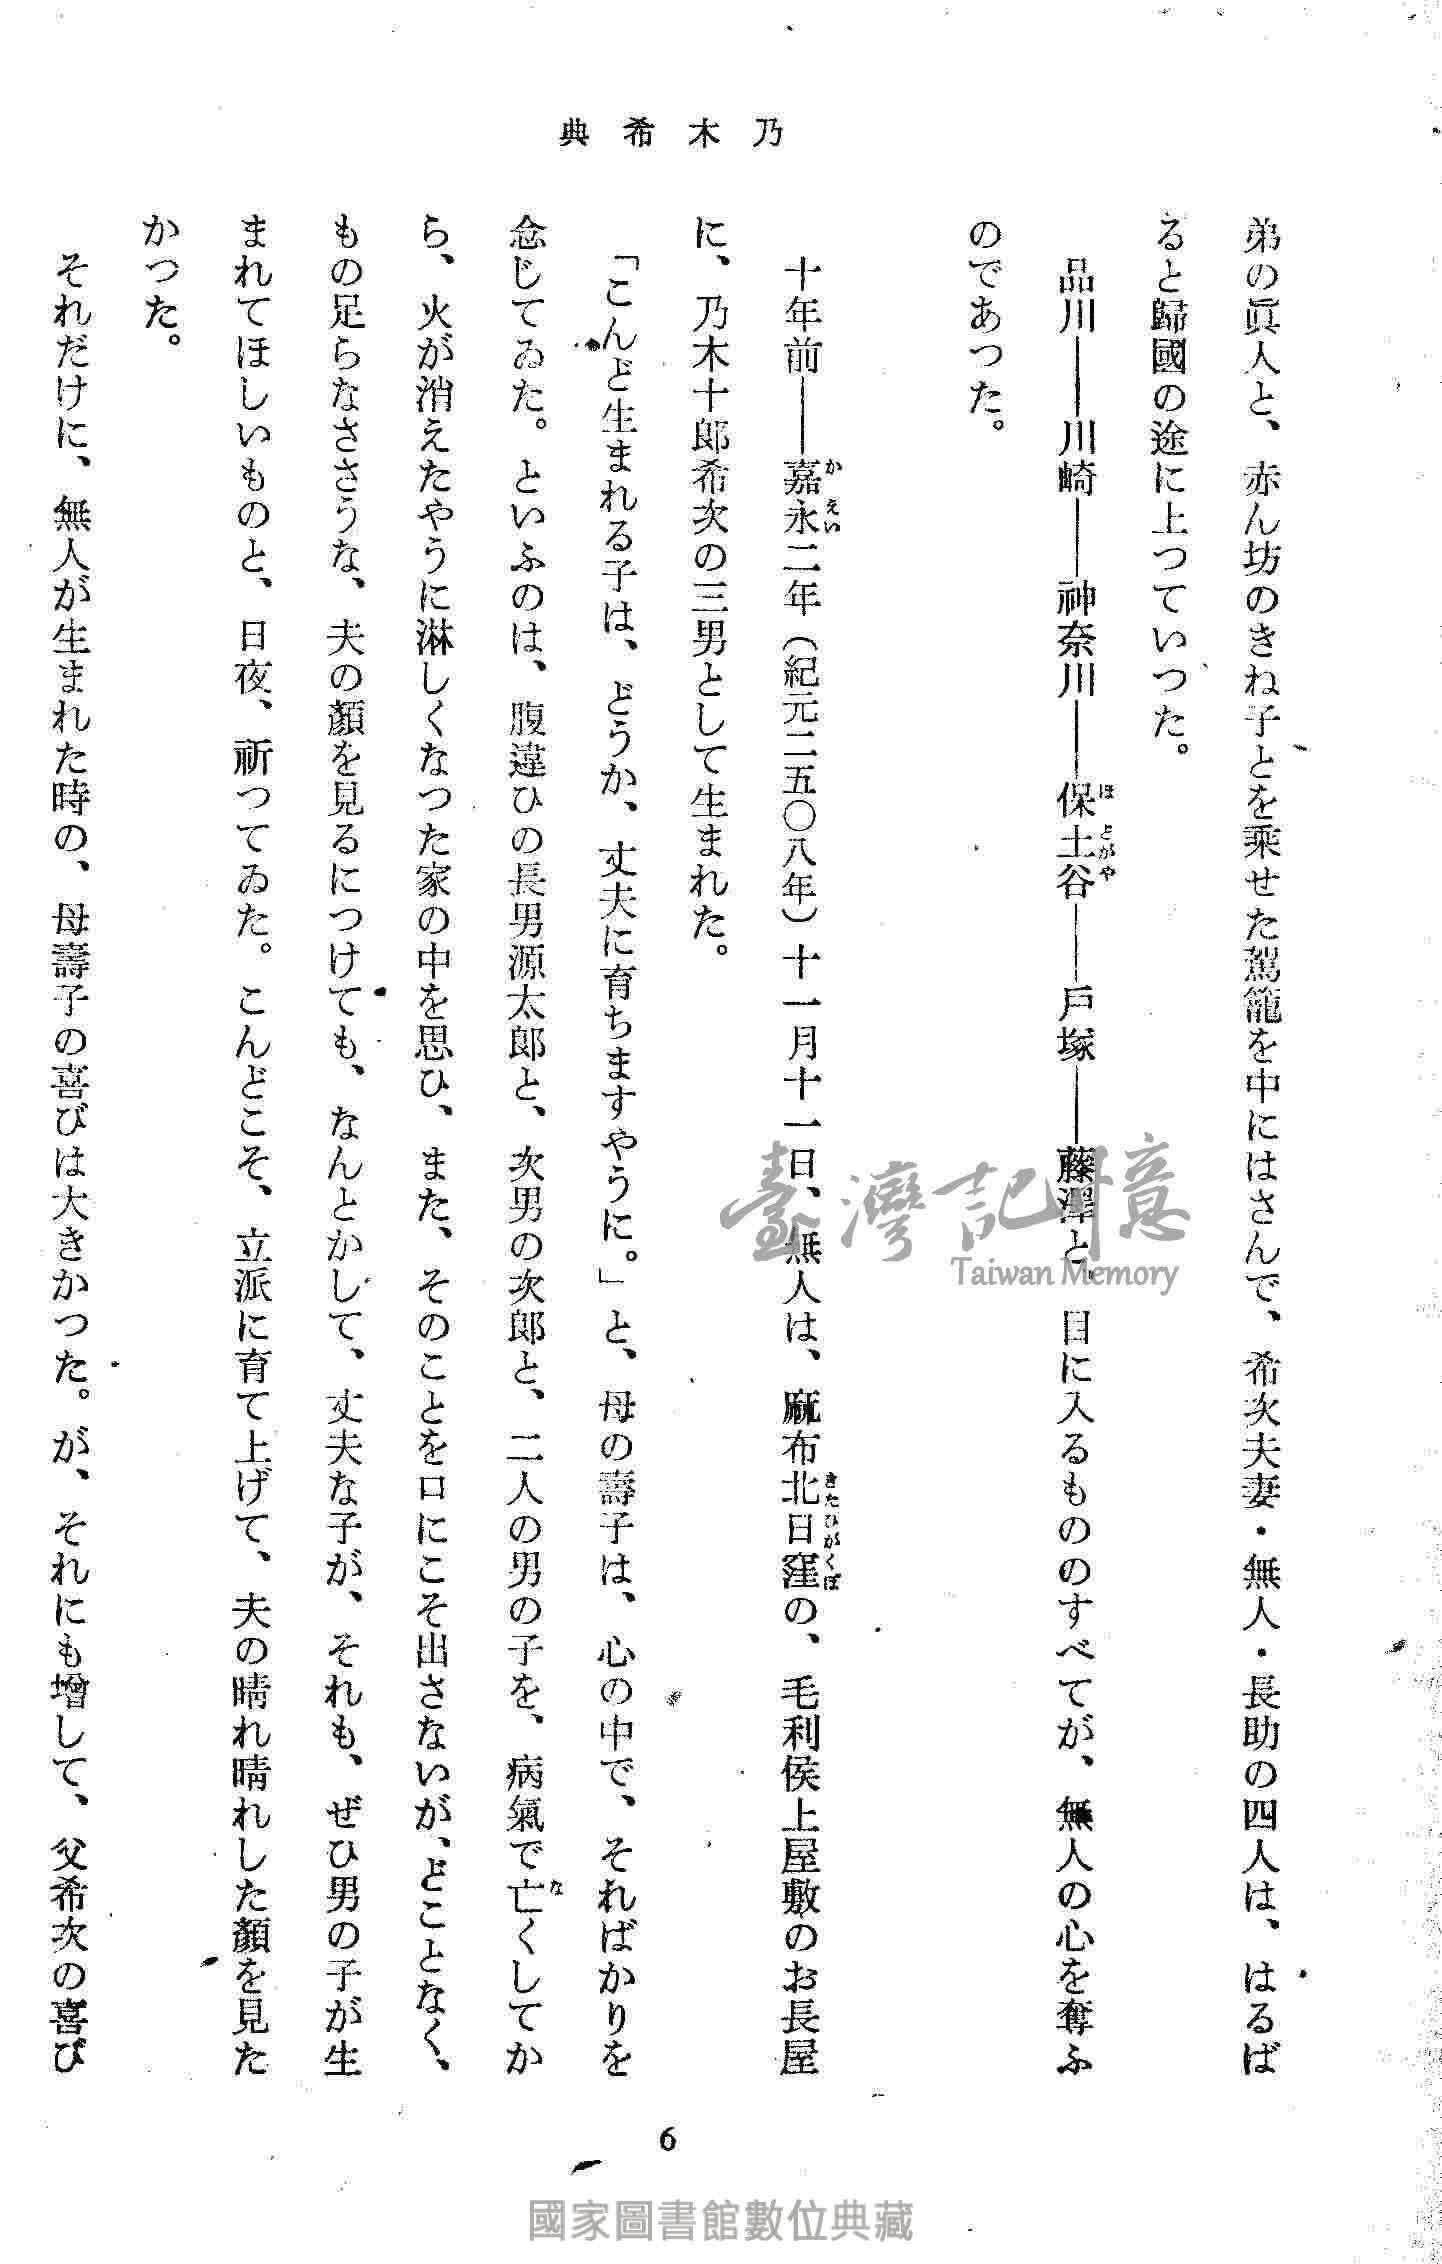 乃木希典
弟の眞人と、赤ん坊のきね子とを乘せた駕籠を中にはさんで、希次夫妻・無人・長助の四人は、はるば
ると歸國の途に上つていつた。
品川――川崎――神奈川――保土谷――戸塚――藤澤と、目に入るもののすべてが、無人の心を奪ふ
ほどがや
のであつた。
十年前――嘉永二年（紀元二五〇八年）十一月十一日、無人は、麻布北日窪の、毛利侯上屋敷のお長屋
かえい
きたひがくぼ
に、乃木十郎希次の三男として生まれた。
「こんど生まれる子は、どうか、丈夫に育ちますやうに。」と、母の壽子は、心の中で、そればかりを
念じてゐた。といふのは、腹違ひの長男源太郎と、次男の次郎と、二人の男の子を、病氣で亡くしてか
な
ら、火が消えたやうに淋しくなつた家の中を思ひ、また、そのことを口にこそ出さないが、どことなく、
もの足らなささうな、夫の顏を見るにつけても、なんとかして、丈夫な子が、それも、ぜひ男の子が生
まれてほしいものと、日夜、祈つてゐた。こんどこそ、立派に育て上げて、夫の晴れ晴れした顏を見た
かつた。
それだけに、無人が生まれた時の、母壽子の喜びは大きかつた。が、それにも增して、父希次の喜び
6
臺灣記憶
Taiwan Memory
國家圖書館數位典藏